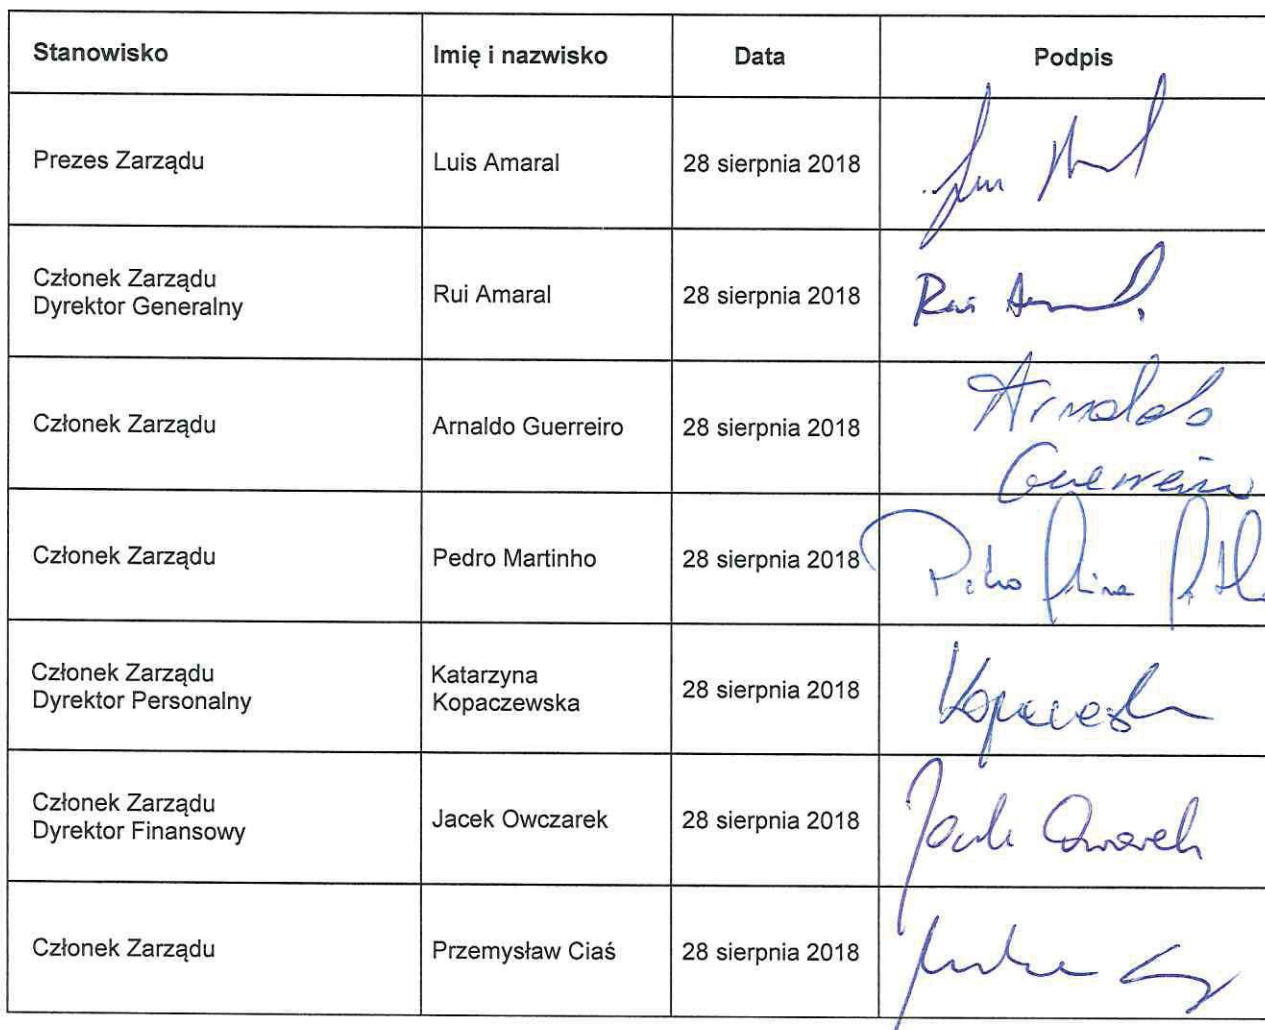 Stanowisko Imię i nazwisko Data Podpis
Prezes Zarządu Luis Amaral 28 sierpnia 2018
Członek Zarządu
Dyrektor Generalny Rui Amaral 28 sierpnia 2018 Rui
Członek Zarządu Arnaldo Guerreiro 28 sierpnia 2018 Arnaldo
Guerreiro
Członek Zarządu Pedro Martinho 28 sierpnia 2018 Pedro
Członek Zarządu
Dyrektor Personalny Katarzyna
Kopaczewska 28 sierpnia 2018
Członek Zarządu
Dyrektor Finansowy Jacek Owczarek 28 sierpnia 2018 Jacek Owczarek
Członek Zarządu Przemysław Ciaś 28 sierpnia 2018